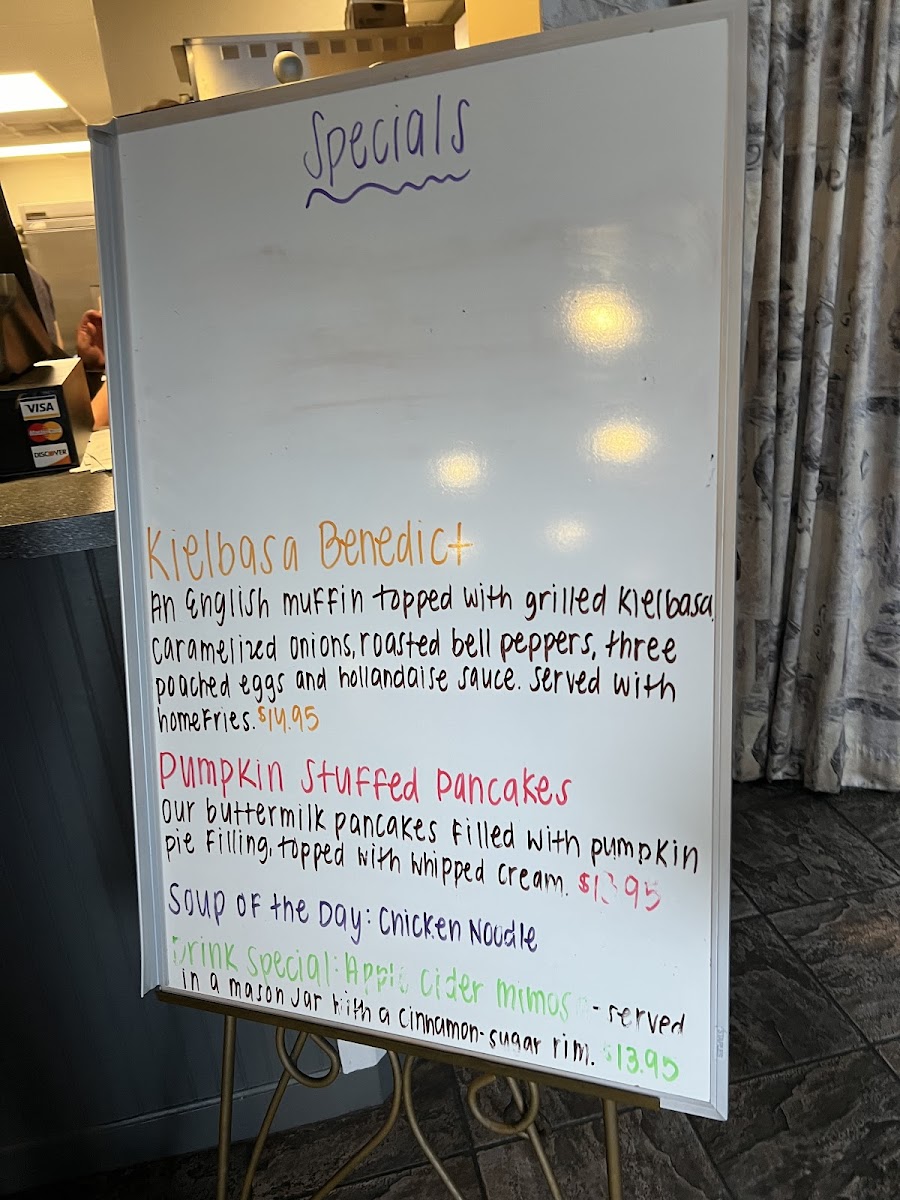 Specials
VISA
MasterCard
DISCOVER
Kielbasa Benedict
An English muffin topped with grilled Kielbasa,
caramelized onions, roasted bell peppers, three
poached eggs and hollandaise sauce. Served with
homefries. $14.95
Pumpkin Stuffed Pancakes
Our buttermilk pancakes filled with pumpkin
pie filling, topped with whipped cream. $13.95
Soup of the Day: Chicken Noodle
Drink Special: Apple Cider Mimosa - served
in a mason jar with a cinnamon-sugar rim. $13.95